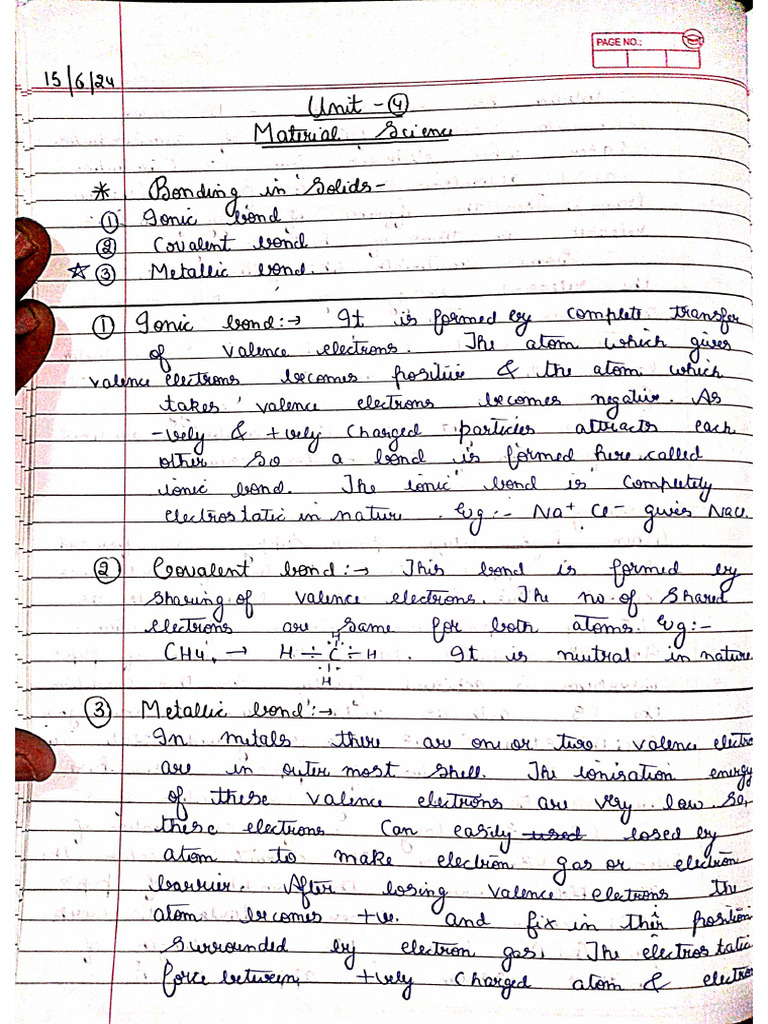 PAGE NO.:
15/6/24
Unit - ④
Material Science
* Bonding in Solids -
① Ionic bond
② Covalent bond
☆ ③ Metallic bond.
① Ionic bond:→ It is formed by complete transfer
of valence electrons. The atom which gives
valence electrons becomes positive & the atom which
takes valence electrons becomes negative. As
-vely & +vely charged particles attracts each
other so a bond is formed here called
ionic bond. The ionic bond is completely
electrostatic in nature. Eg:- Na+ Cl- gives NaCl
② Covalent bond:→ This bond is formed by
sharing of valence electrons. The no. of shared
electrons are same for both atoms. Eg:-
H
CH4 → H ÷ C ÷ H . It is neutral in nature
H
③ Metallic bond:→
In metals there are one or two valence electro
are in outer most shell. The ionisation energy
of these valence electrons are very low. So,
these electrons can easily used losed by
atom to make electron gas or electron
barrier. After losing valence electrons the
atom becomes +ve. and fix in their position
surrounded by electron gas. The electrostatic
force between +vely charged atom & electro